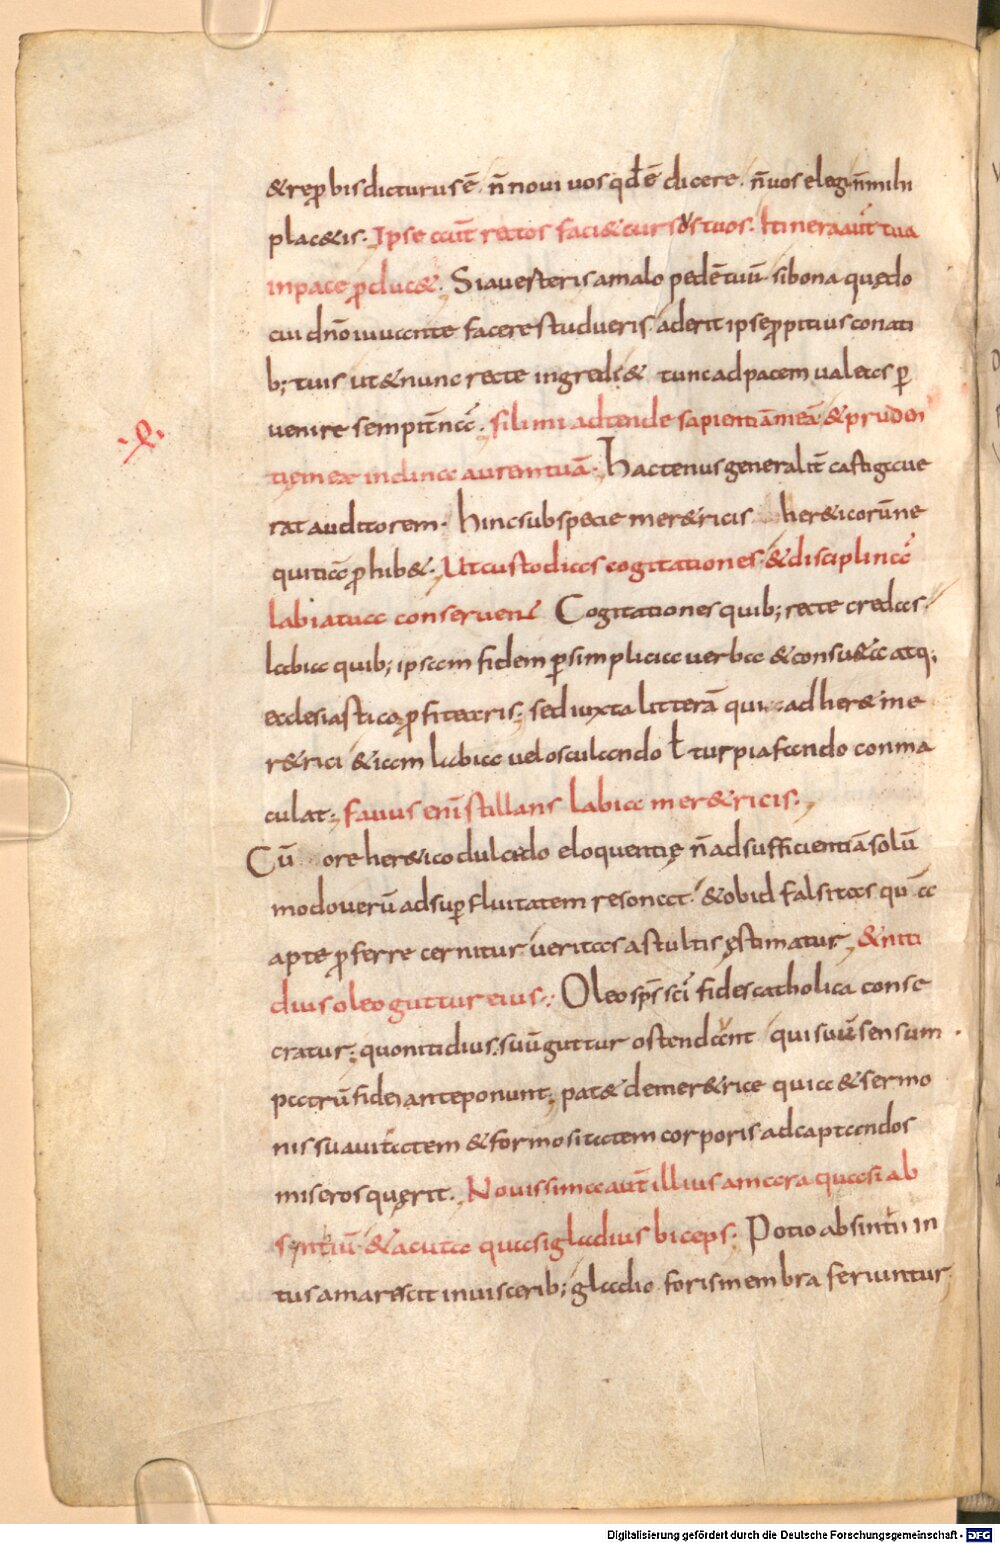 & rep̱bis dicturus ē. n̄ novi vos qđ ē dicere. n̄ vos elegi n̄ mihi
plac&is. Ipse aut̄ rectos faci& cursus tuos. Itinera aut̄ tua
in pace p̱duc&. Si averteris a malo pedē tuū. si bona quędo
cui dn̄o iuvante facere studueris. aderit ipse p̱pitius conati
b; tuis ut & nunc recte ingredi & tunc ad pacem valeas ꝑ
venire sempit̄nā. fili mi adtende sapientiā meā & pruden
tię meę inclina aurem tuā. Hactenus generalit̄ castigave
rat auditorem. hinc sub specie mer&ricis her&icorū ne
quitiā p̱hib&. Ut custodias cogitationes. & disciplinā
labia tua conservent Cogitationes quib; recte credas.
labia quib; ipsam fidem ꝑ simplicia verba & consu&a atq;
ecclesiastica p̱fitearis; sed iuxta litterā qui adher& me
r&rici & iam labia vel osculando ł turpia fando conma
culat; favus eni stillans labia mer&ricis.
Cū ore her&ico dulcedo eloquentię n̄ ad sufficientiā solū
modo verū ad suꝑfluitatem resonat. & ob id falsitas qu ā
apte p̱ferre cernitur veritas a stultis ęstimatur, & niti
dius oleo guttur eius; Oleo sp̄s sc̄i fides catholica conse
cratur; quo nitidius suū guttur ostendunt qui suū sensum
patrū fidei anteponunt; pat& de mer&rice quia & sermo
nis suavitatem & formositatem corporis ad captandos
miseros quęrit. Novissima aut̄ illius amara quasi ab
sintiū. & acuta quasi gladius biceps. Potio absintii in
tus amarescit in viscerib; gladio foris membra feriuntur
Digitalisierung gefördert durch die Deutsche Forschungsgemeinschaft - DFG